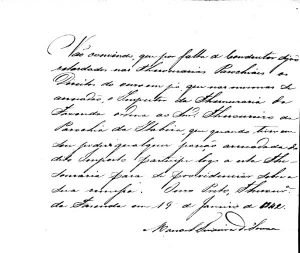 Não convindo, que por falta de Conductor sejão
retardados nas Thesourarias Parochiaes os
Direitos de ouro em pó que nas mesmas se
arrecadão o Inspector da Thesouraria da
Fazenda ordena ao Snr. Thesoureiro da
Parochia da Itabira, que quando tiver em
seu poder qualquer porção arrecadada do
dito Imposto participe logo a esta The
souraria para se providenciar sobre a
sua remessa. Ouro Preto, Thesou
da Fazenda em 19 de Janeiro de 1842.
Manoel Teixeira de Souza